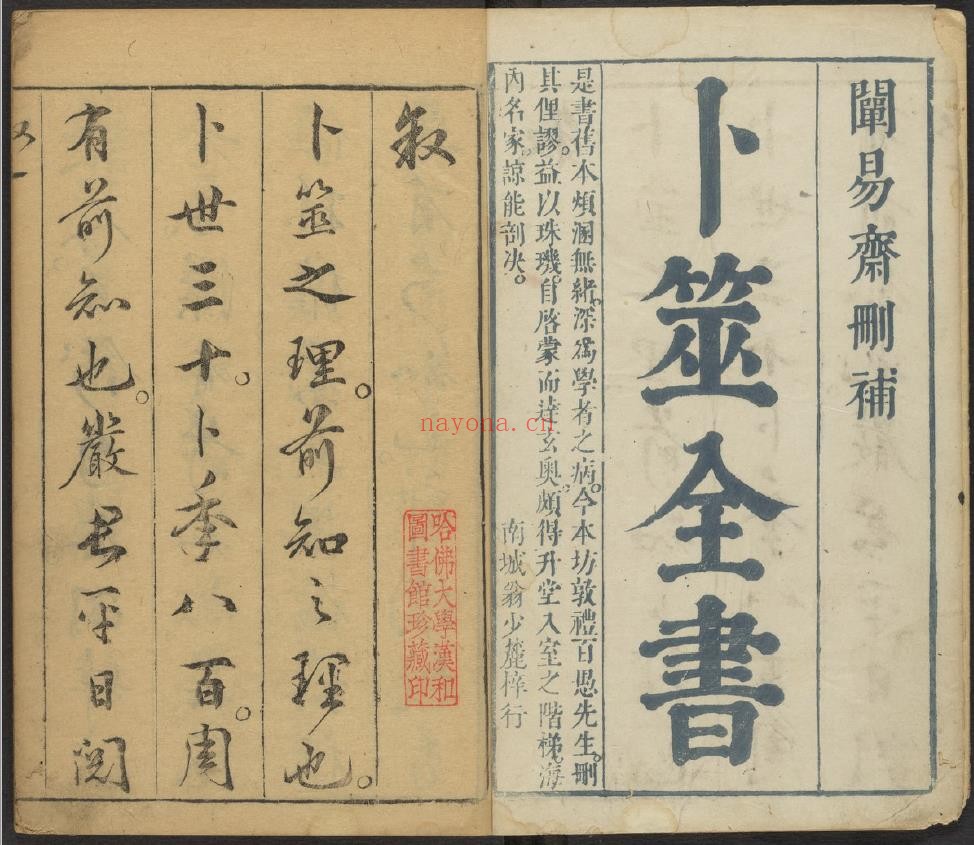 闡易齋刪補
卜筮全書
是書舊本煩溷無緒。深爲學者之病。今本坊敦禮百愚先生。刪
其俚謬。益以珠璣。自啓蒙而達玄奧。頗得升堂入室之階梯。海
內名家。諒能剖决。
南城翁少麓梓行
敘
卜筮之理。前知之理也。
卜世三十。卜年八百。周
有前知也。嚴君平日閱
哈佛大學漢和
圖書館珍藏印
nayona.cn